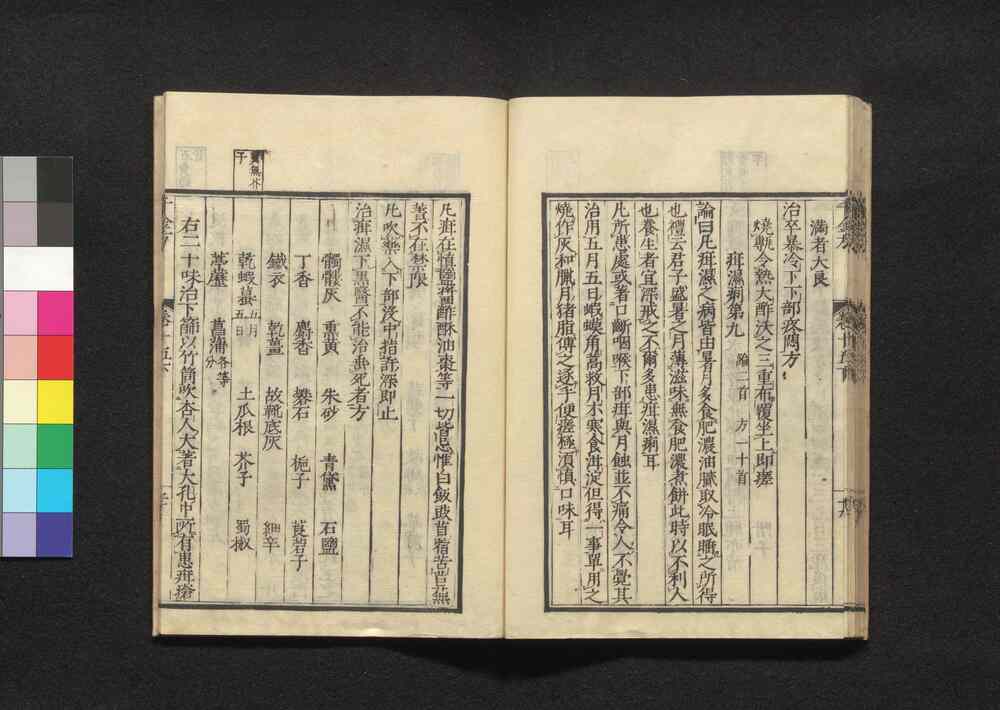 滿者大良
治卒暴冷下下部疼悶方
燒塼令熱大酢沃之三重布覆坐上即瘥
疳濕痢第九 論二首 方一十首
論曰凡疳濕之病皆由暑月多食肥濃油膩取冷眠睡之所得
也禮云君子盛暑之月薄滋味無食肥濃煮餅此時以不利人
也養生者宜深戒之不爾多患疳濕痢耳
凡所患處或著口斷咽喉下部疳與月蝕並不痛令人不覺其
治用五月五日蝦蟇角蒿救月木寒食泔淀但得一事單用之
燒作灰和臘月猪脂傅之逐手便瘥極須慎口味耳
凡疳在慎鹽醬酢酥油棗等一切皆忌惟白飯豉苜蓿苦苣無
菁不在禁限
凡吹藥入下部沒中指許深即止
治疳濕下黑醫不能治垂死者方
髑髏灰 熏黃 朱砂 青黛 石鹽
丁香 麝香 礬石 梔子 莨菪子
鐵衣 乾薑 故靴底灰 細辛
乾蝦蟇五月五日 土瓜根 芥子 蜀椒
葶藶 菖蒲各等分
右二十味治下篩以竹筒吹杏人大著大孔中所有患疳瘡
子
卷十五下
十九